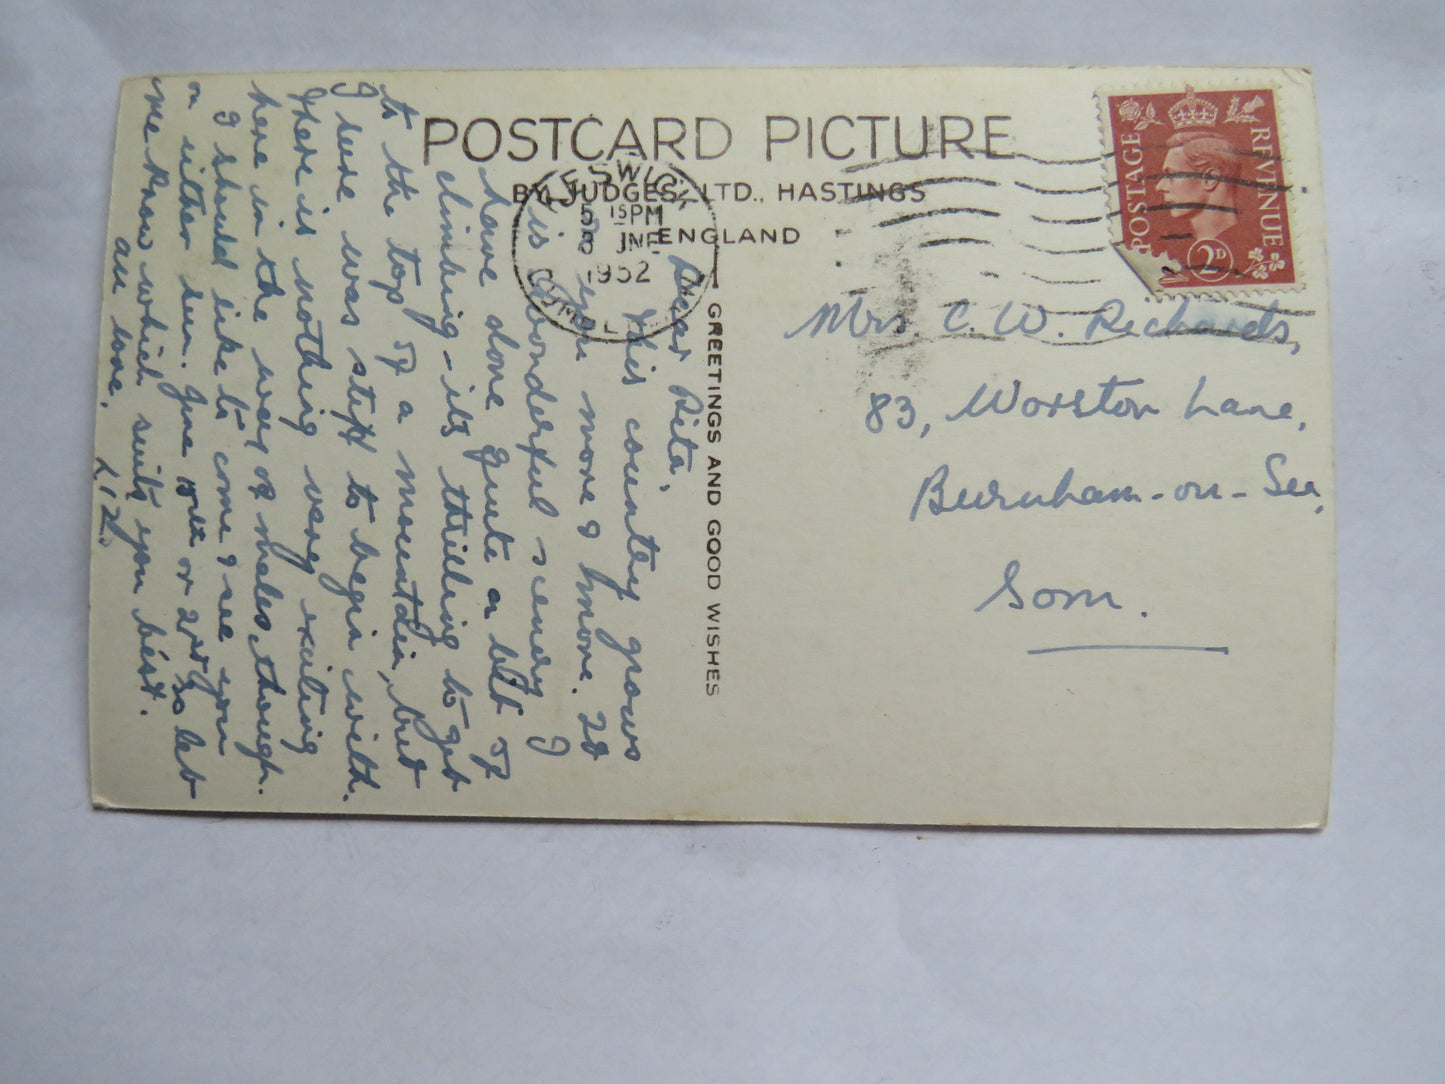 POSTCARD PICTURE
BY JUDGES LTD., HASTINGS
ENGLAND
KESWICK
5 15 PM
8 JNE
1952
CUMBERLAND
POSTAGE REVENUE
2D
GREETINGS AND GOOD WISHES
Mrs C. W. Richards,
83, Worston Lane,
Burnham-on-Sea,
Som.
Dear Rita,
This country grows
on you more & more. It
is wonderful scenery I
have done quite a bit of
climbing - it's thrilling to get
to the top of a mountain, but
I sure was stiff to begin with.
There is nothing very exciting
here in the way of males though.
I should like to come & see you
on either Sun. June 15th or 22nd so let
me know which suits you best.
All love,
Liz.